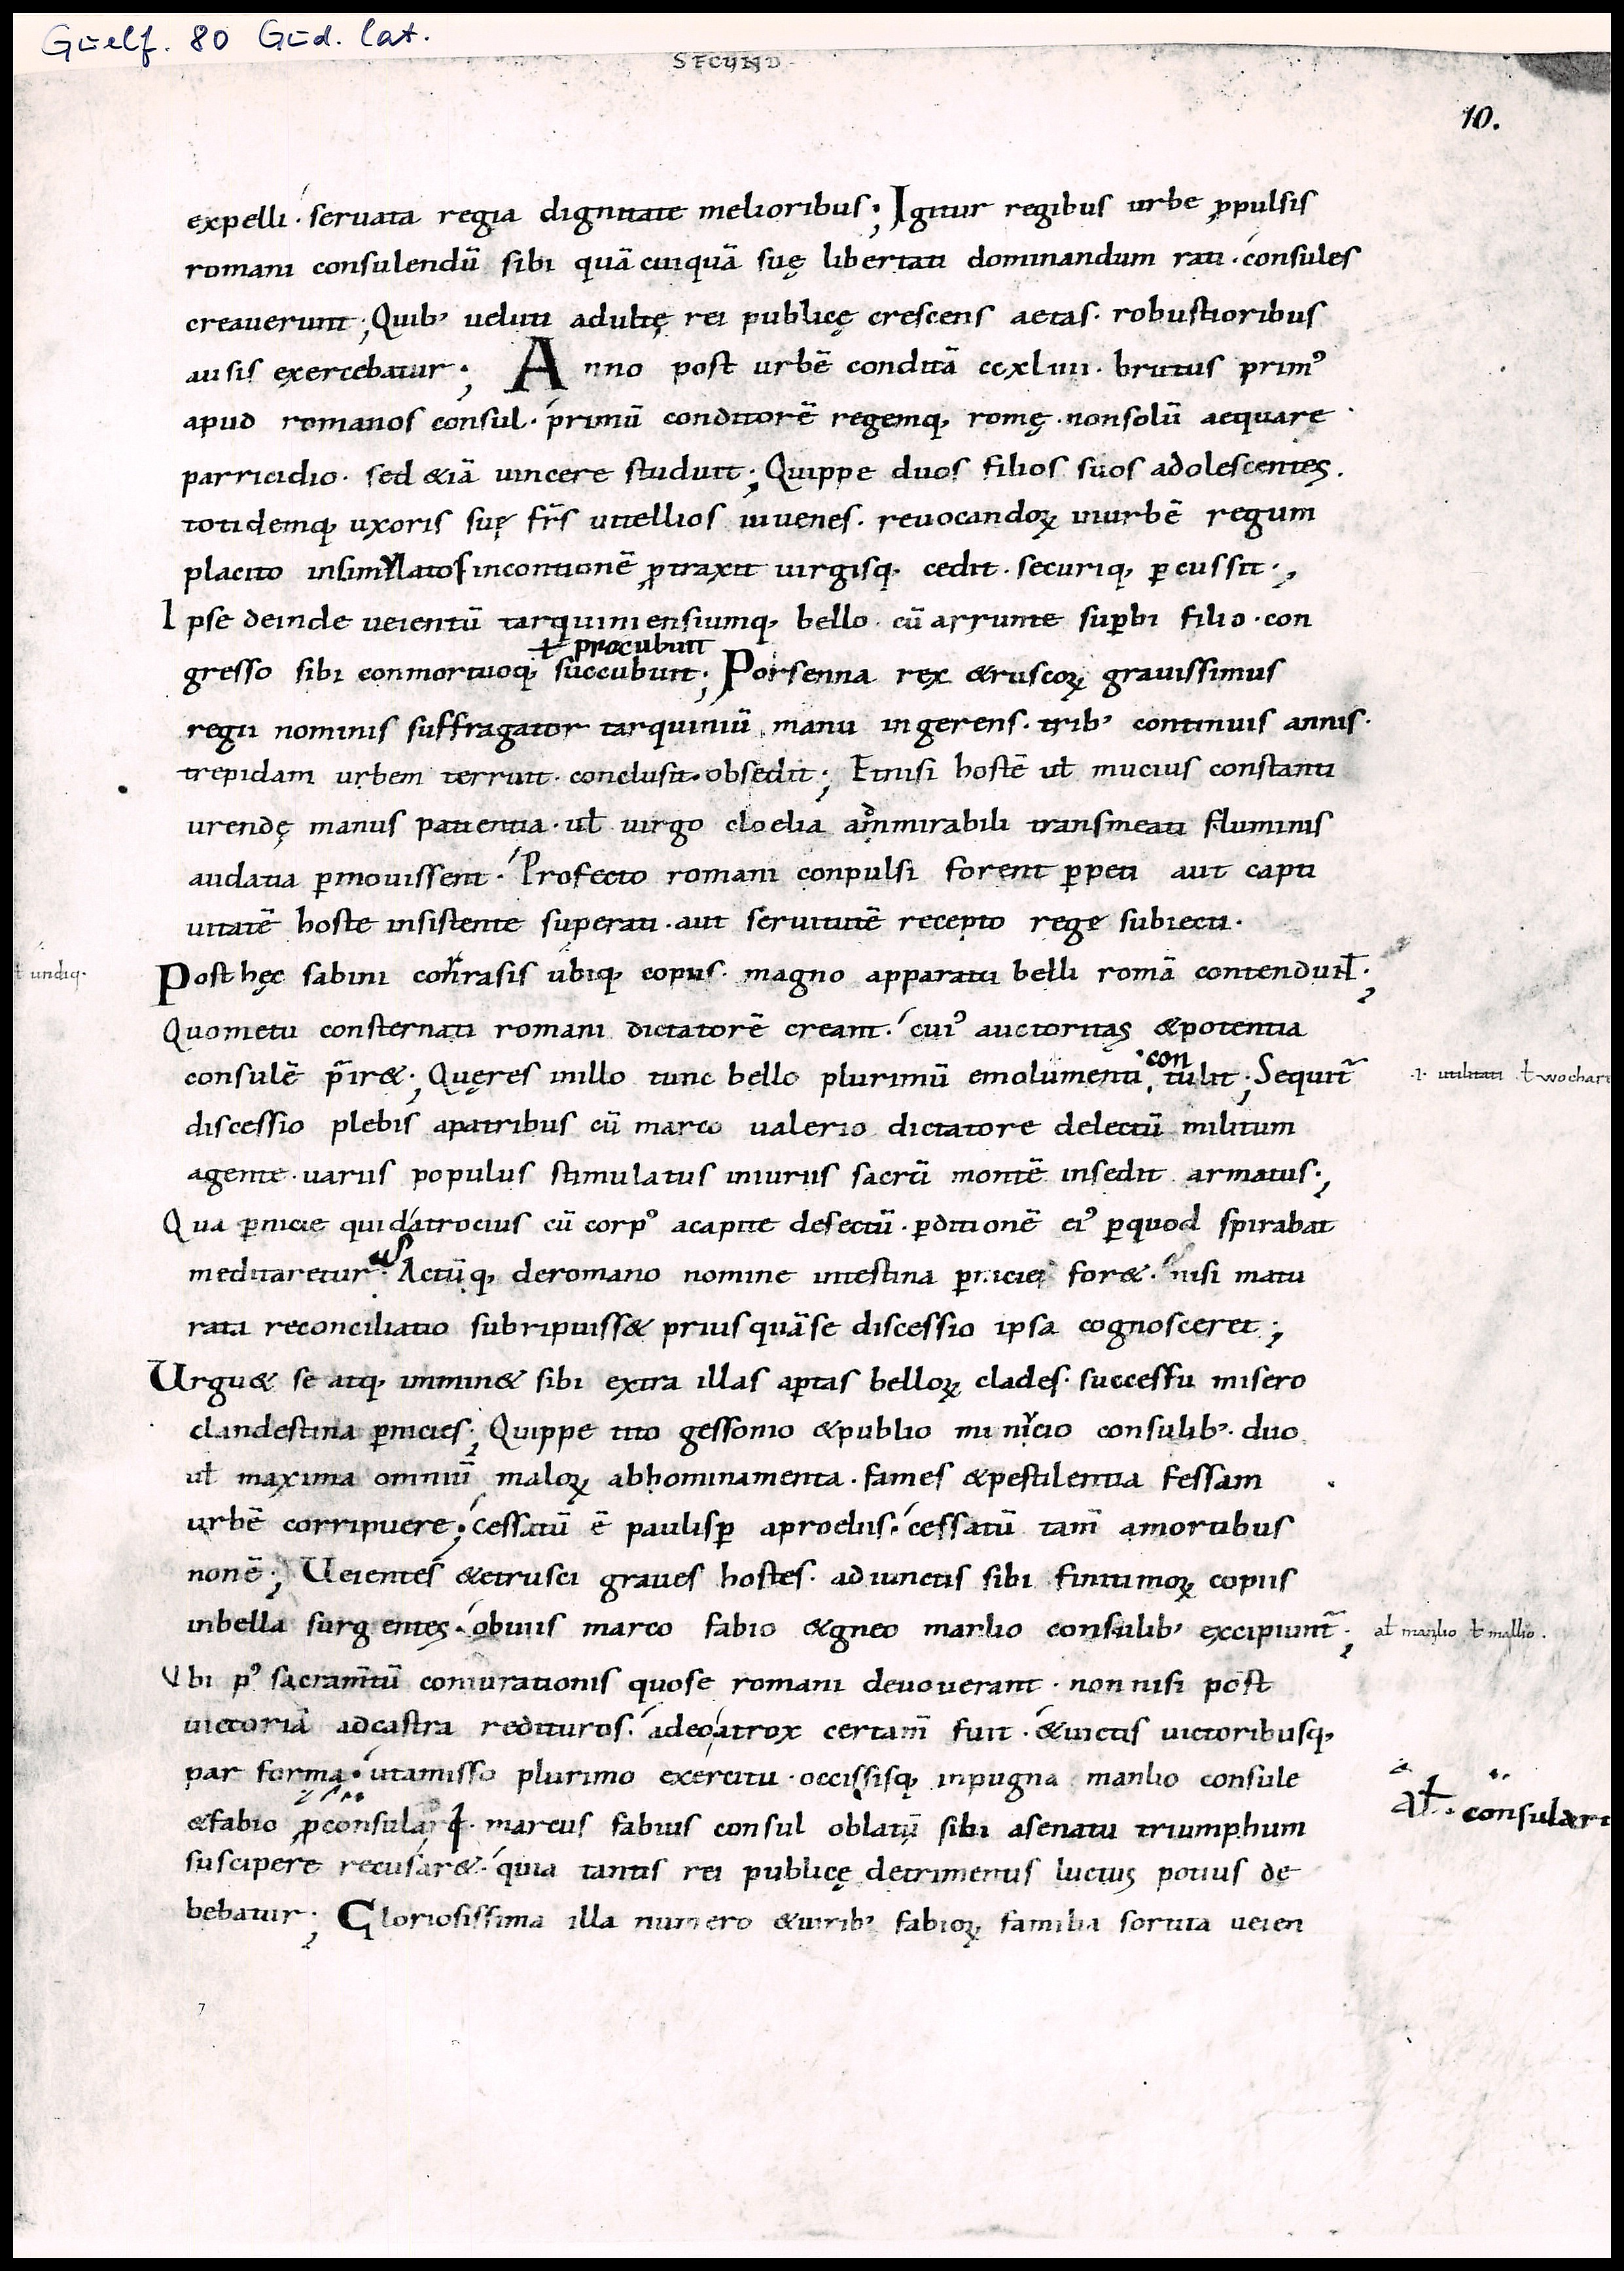 Guelf. 80 Gud. lat.
SECUND
10.
expelli · seruata regia dignitate melioribus; Igitur regibus urbe ꝓpulsis
romani consulendū sibi quā cuiquā suę libertati dominandum rati · consules
creauerunt; Quib; ueluti adultę rei publicę crescens aetas · robustioribus
ausis exercebatur; Anno post urbē conditā ccxliiii · brutus primꝰ
apud romanos consul · primū conditorē regemq; romę · nonsolū aequare
parricidio · sed &iā uincere studuit; Quippe duos filios suos adolescentes.
totidemq; uxoris suę fr̄s uitellios iuuenes · reuocandoꝝ inurbē regum
placito insimulatos incontionē ꝓtraxit uirgisq; cedit · securiq; ꝑcussit;
Ipse deinde ueientū tarquiniensiumq; bello · cū arrunte suꝑbi filio · con
ł procubuit
gresso sibi conmortuoq; succubuit; Porsenna rex &ruscoꝝ grauissimus
regii nominis suffragator tarquiniū manu ingerens · trib; continuis annis ·
trepidam urbem terruit · conclusit · obsedit; Etnisi hostē uł mucius constanti
urendę manus patientia · uł uirgo cloelia ammirabili transmeati fluminis
d
audatia ꝑmouissent · Profecto romani conpulsi forent ꝑpeti aut capti
uitatē hoste insistente superati · aut seruitutē recepto rege subiecti ·
ł undiq;
Post hęc sabini conrasis ubiq; copiis · magno apparatu belli romā contendunt;
Quometu consternati romani dictatorē creant · cuiꝰ auctoritas &potentia
consulē p̄ir&; Quęres inillo tunc bello plurimū emolumenti tulit; Sequit̄
con
.i. utilitati ł wochar
discessio plebis apatribus cū marco ualerio dictatore delectū militum
agente · uariis populus stimulatus iniuriis sacrū montē insedit armatus;
Qua ꝑnicie quid atrocius cū corpꝰ acapite desectū · ꝑditionē eiꝰ ꝑquod spirabat
us
meditaretur · Actūq; deromano nomine intestina ꝑnicie for& · nisi matu
rata reconciliatio subripuiss& priusquāse discessio ipsa cognosceret;
Urgu& se atq; immin& sibi extra illas aꝑtas belloꝝ clades · successu misero
clandestina ꝑnicies; Quippe tito gessonio &publio minucio consulib; duo
uł maxima omniū maloꝝ abhominamenta · fames &pestilentia fessam
urbē corripuere; cessatū ē paulisꝑ aproeliis · cessatū tam̄ amortibus
nonē; Ueientes &etrusci graues hostes · adiunctis sibi finitimoꝝ copiis
inbella surgentes · obuiis marco fabio &gneo manlio consulib; excipiunt̄;
ał manlio ł mallio.
Ubi pꝰ sacram̄tū coniurationis quose romani deuouerant · non nisi post
uictoriā adcastra redituros · adeo atrox certam̄ fuit · &uictis uictoribusq;
par forma · utamisso plurimo exercitu · occissisq; inpugna manlio consule
Ał · consulari
&fabio ꝓconsulari · marcus fabius consul oblatū sibi asenatu triumphum
suscipere recusar& · quia tantis rei publicę detrimentis luctus potius de
bebatur; Gloriosissima illa numero &uirib; fabioꝝ familia sortita ueien